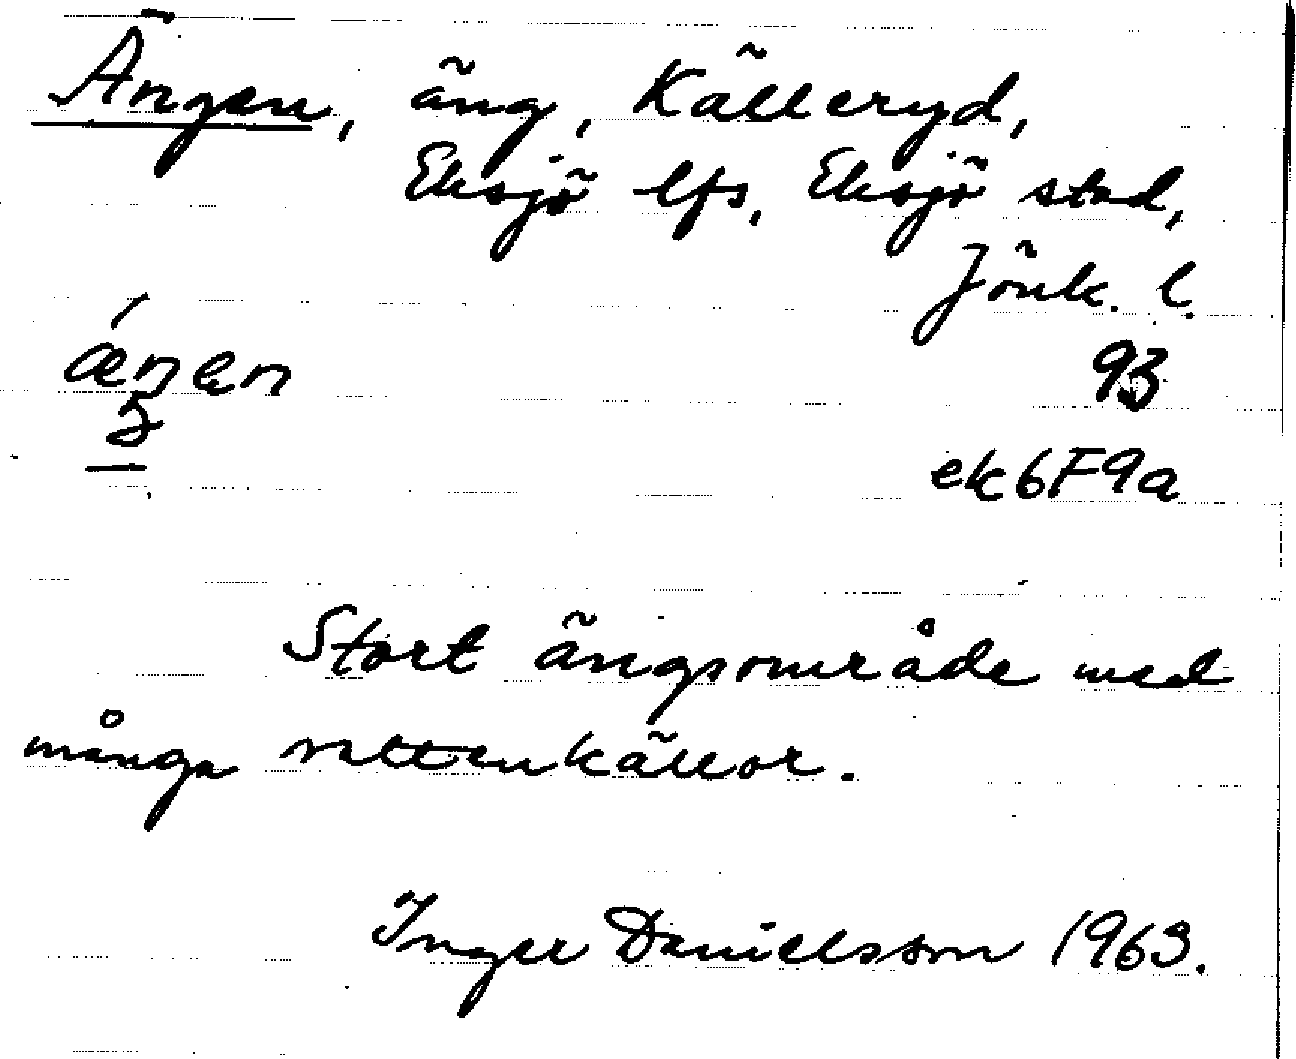 Ängen, äng, Källeryd,
Eksjö lfs, Eksjö stad,
Jönk. l.
93
ek6F9a
Stort ängsområde med
många vattenkällor.
Inger Danielsson 1963.